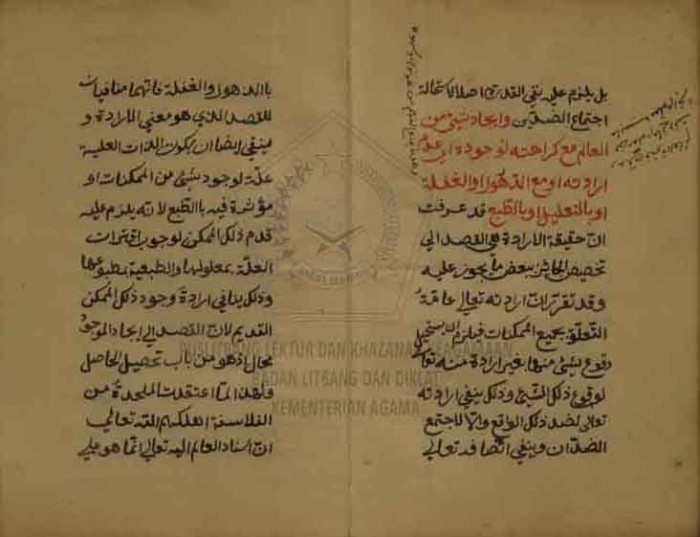 بل يلزم عليه نفي القدرة اصلا لاستحالة
اجتماع الضدين وايجاد شئ من
العالم مع كراهته لوجوده اي عدم
ارادته او مع الذهول او الغفلة
او بالتعليل او بالطبع قد عرفت
ان حقيقة الارادة هي القصد الي
تخصيص الجائز ببعض ما يجوز عليه
وقد تقرر ان ارادته تعالي عامة
التعلق بجميع الممكنات فيلزم ان يستحيل
وقوع شئ منها بغير ارادة منه تعالي
لوقوع ذلك الشئ وذلك بنفي ارادته
تعالي لضد ذلك الواقع والا لاجتمع
الضدان وبنفي اتصافه تعالي
باالذهول والغفلة فانهما منافيان
للقصد الذي هو معني الارادة و
بنفي ايضا ان يكون الذات العلية
علة لوجود شئ من الممكنات او
مؤثرة فيه باالطبع لانه يلزم عليه
قدم ذلك الممكن لوجوب اقتران
العلة بمعلولها والطبيعة بمطبوعها
وذلك ينافي ارادة وجود ذلك الممكن
القديم لان القصد الي ايجاد الموجود
محال اذ هو من باب تحصيل الحاصل
ولهذا لما اعتقدت الملحدة من
الفلاسفة اهلكهم الله تعالي
ان اسناد العالم اليه تعالي انما هو علي
PUSLITBANG LEKTUR DAN KHAZANAH KEAGAMAAN
BADAN LITBANG DAN DIKLAT
KEMENTERIAN AGAMA